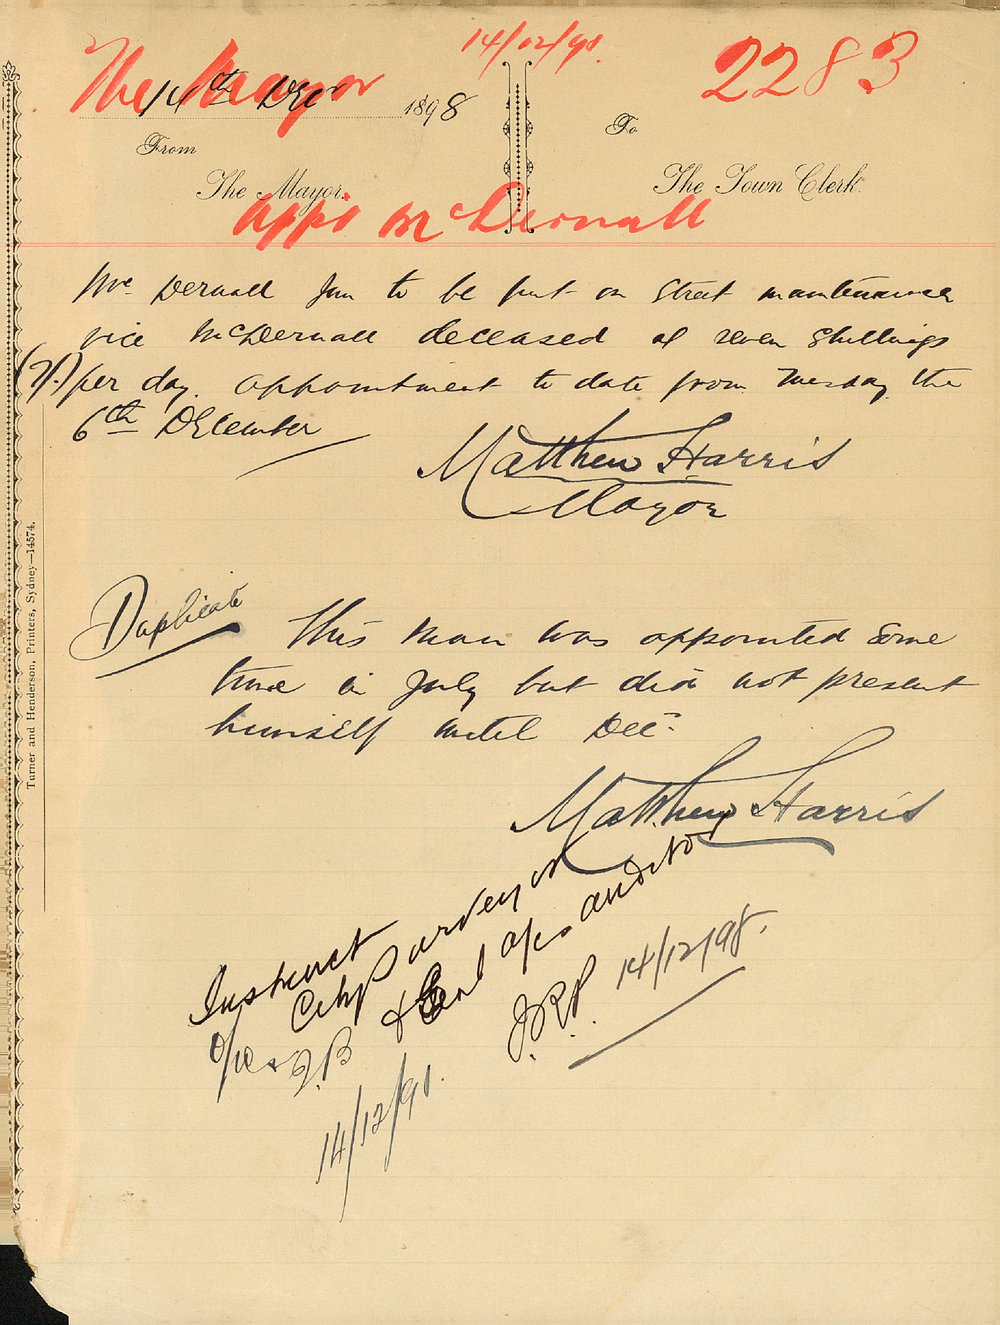 The Mayor
14/12/98
2283
14th Dec 1898
From
The Mayor.
To
The Town Clerk.
appt McDermott
Mc. Dermott Jun to be put on street maintenance
vice McDermott deceased at seven shillings
(7/.) per day. appointment to date from Tuesday the
6th December
Matthew Harris
Mayor
Duplicate
This man was appointed some
time in July but did not present
himself until Dec.
Matthew Harris
Instruct
City Surveyor
& Genl a/cs auditor
J.R.P. 14/12/98.
14/12/98.
Turner and Henderson, Printers, Sydney—14574.